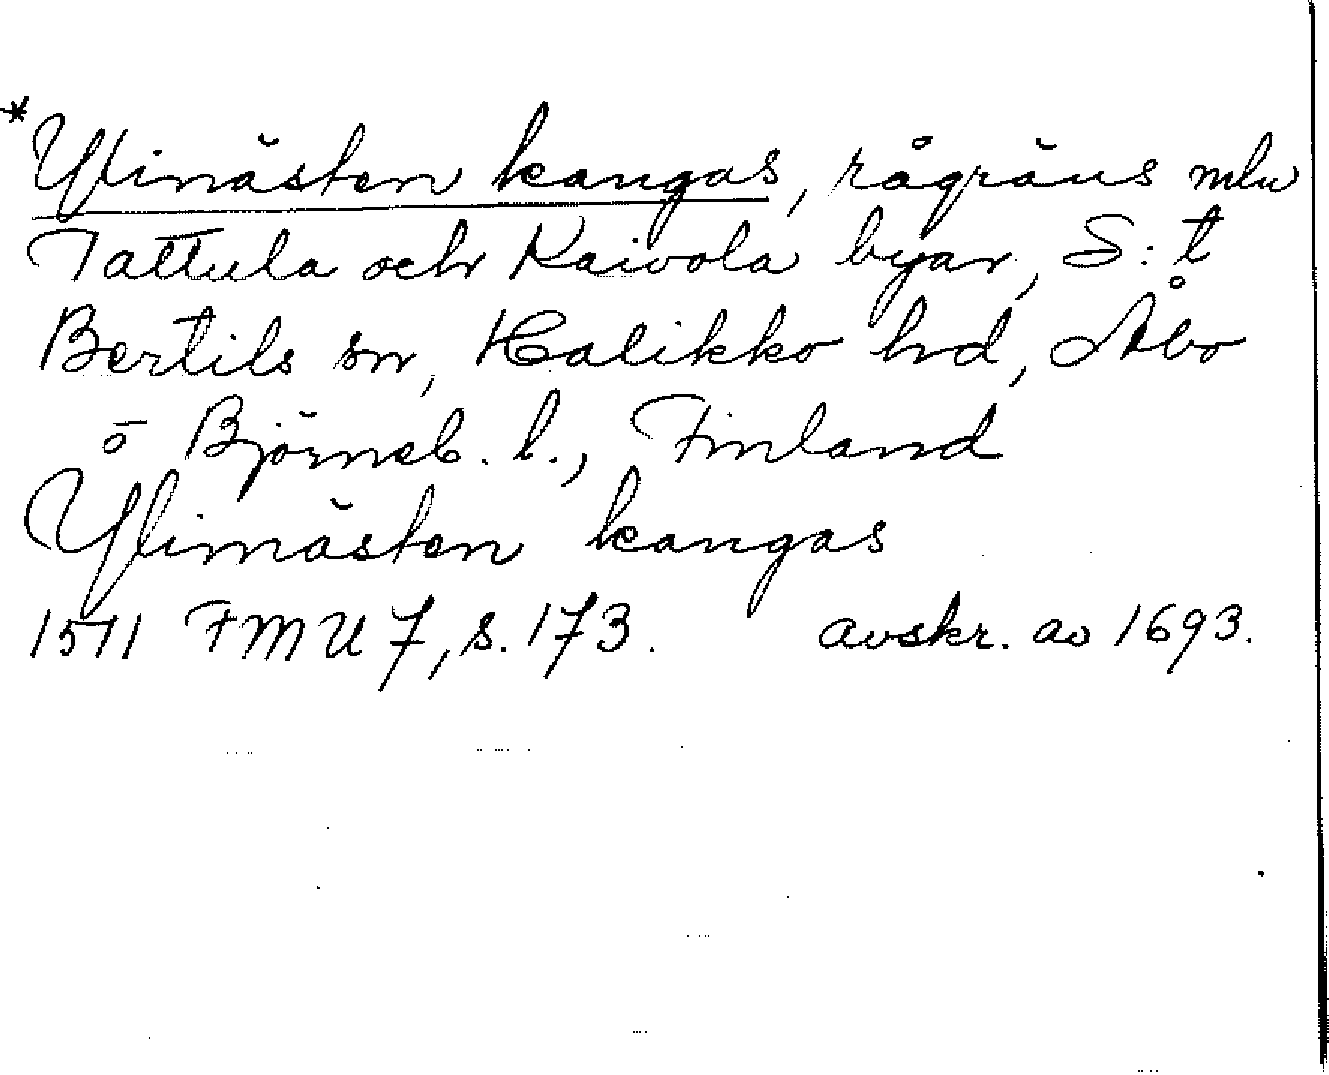 *Ylimästen kangas, rågräns mlu
Tattula och Kaivola byar, S:t
Bertils sn, Halikko hd, Åbo
o Björneb. l., Finland
Ylimästen kangas
1511 FMU 7, s. 173. avskr. av 1693.